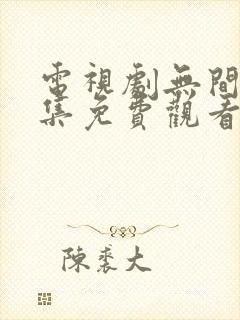 電視劇無間
集免費觀看
陳裘大